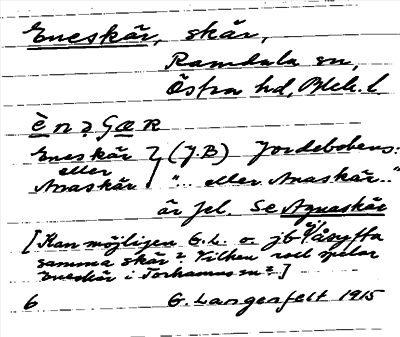 Eneskär, skär,
Ramdala sn,
Östra hd, Blek. l.
è n ə G æ R
Eneskär } (J.B) Jordebokens:
eller
Anaskär "... eller Anaskär.."
är fel. Se Agnaskär
[Kan möjligen G.L. o. jb åsyfta
samma skär? Vilken roll spelar
Eneskär i Torhamns sn?]
6 G. Langenfelt 1915